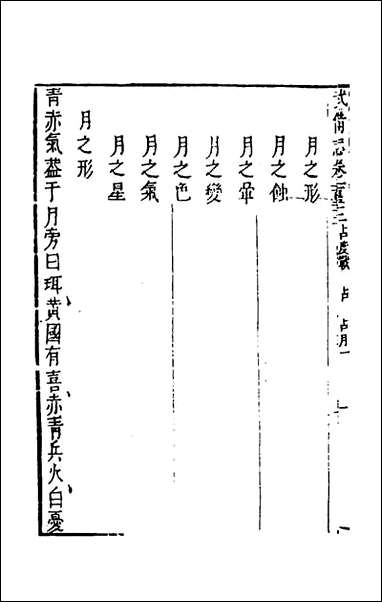 武備志卷 占度載 占 占月一
月之形
月之蝕
月之暈
月之變
月之色
月之氣
月之星
月之形
青赤氣葢于月旁曰珥黃國有喜赤青兵火白憂